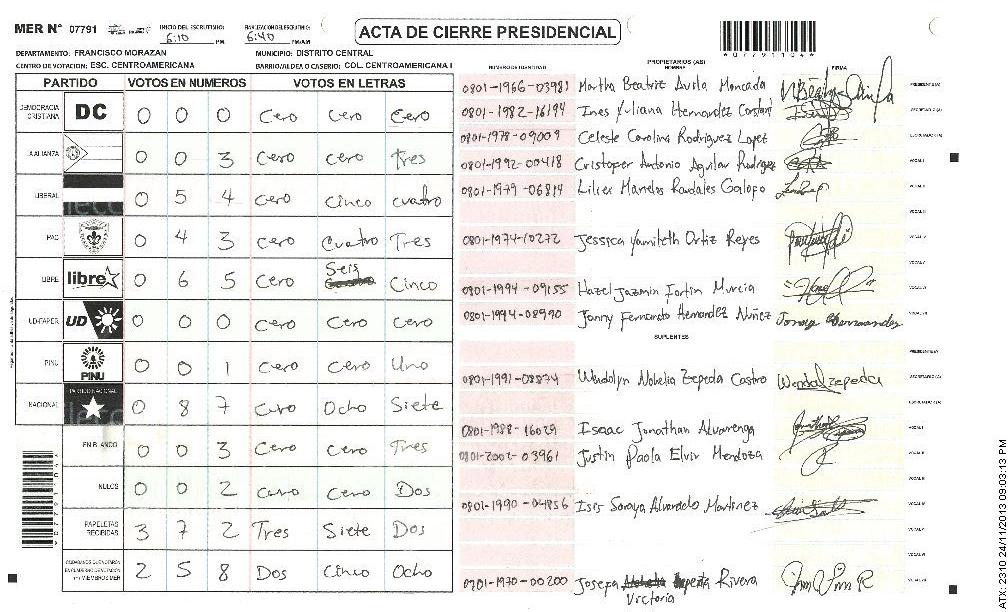 MER N° 07791
INICIO DEL ESCRUTINIO: 6:10 PM
FINALIZACION ESCRUTINIO: 6:40 PM/AM
ACTA DE CIERRE PRESIDENCIAL
*077911104*
DEPARTAMENTO: FRANCISCO MORAZAN MUNICIPIO: DISTRITO CENTRAL
CENTRO DE VOTACION: ESC. CENTROAMERICANA BARRIO/ALDEA O CASERIO: COL. CENTROAMERICANA I
PARTIDO VOTOS EN NUMEROS VOTOS EN LETRAS
DEMOCRACIA CRISTIANA DC 0 0 0 Cero Cero Cero
ALIANZA 0 0 3 Cero Cero Tres
LIBERAL 0 5 4 Cero Cinco Cuatro
PAC 0 4 3 Cero Cuatro Tres
LIBRE libre 0 6 5 Cero Seis Cinco
UD-FAPER UD 0 0 0 Cero Cero Cero
PINU PINU 0 0 1 Cero Cero Uno
NACIONAL PARTIDO NACIONAL 0 8 7 Cero Ocho Siete
EN BLANCO 0 0 3 Cero Cero Tres
NULOS 0 0 2 Cero Cero Dos
PAPELETAS RECIBIDAS 3 7 2 Tres Siete Dos
MIEMBROS MER 2 5 8 Dos Cinco Ocho
NUMERO DE IDENTIDAD PROPIETARIOS (AS) NOMBRE FIRMA
0801-1966-03981 Martha Beatriz Avila Moncada PRESIDENTE(A)
0801-1982-16194 Ines Yuliana Hernandez SECRETARIO(A)
0801-1978-09009 Celeste Carolina Rodriguez Lopez ESCRUTADOR(A)
0801-1992-00418 Cristoper Antonio Aguilar Rodriguez VOCAL I
0801-1979-06814 VOCAL II
VOCAL III
0801-1974-10272 Jessica Yamileth Ortiz Reyes VOCAL IV
VOCAL V
0801-1994-09155 Hazel Jazmin Fortin Murcia VOCAL VI
0801-1994-08990 Jonny Fernando Hernandez Nuñez VOCAL VII
SUPLENTES
PRESIDENTE(A)
0801-1991-08874 Wendolyn Nohelia Zepeda Castro SECRETARIO(A)
ESCRUTADOR(A)
0801-1988-16029 Isaac Jonathan Alvarenga VOCAL I
0801-2002-03961 Justin Paola Elvir Mendoza VOCAL II
VOCAL III
0801-1990-04856 Isis Soraya Alvarado Martinez VOCAL IV
VOCAL V
VOCAL VI
0701-1970-00200 Josefa Victoria Rivera VOCAL VII
ATX: 2310 24/11/2013 09:03:13 PM